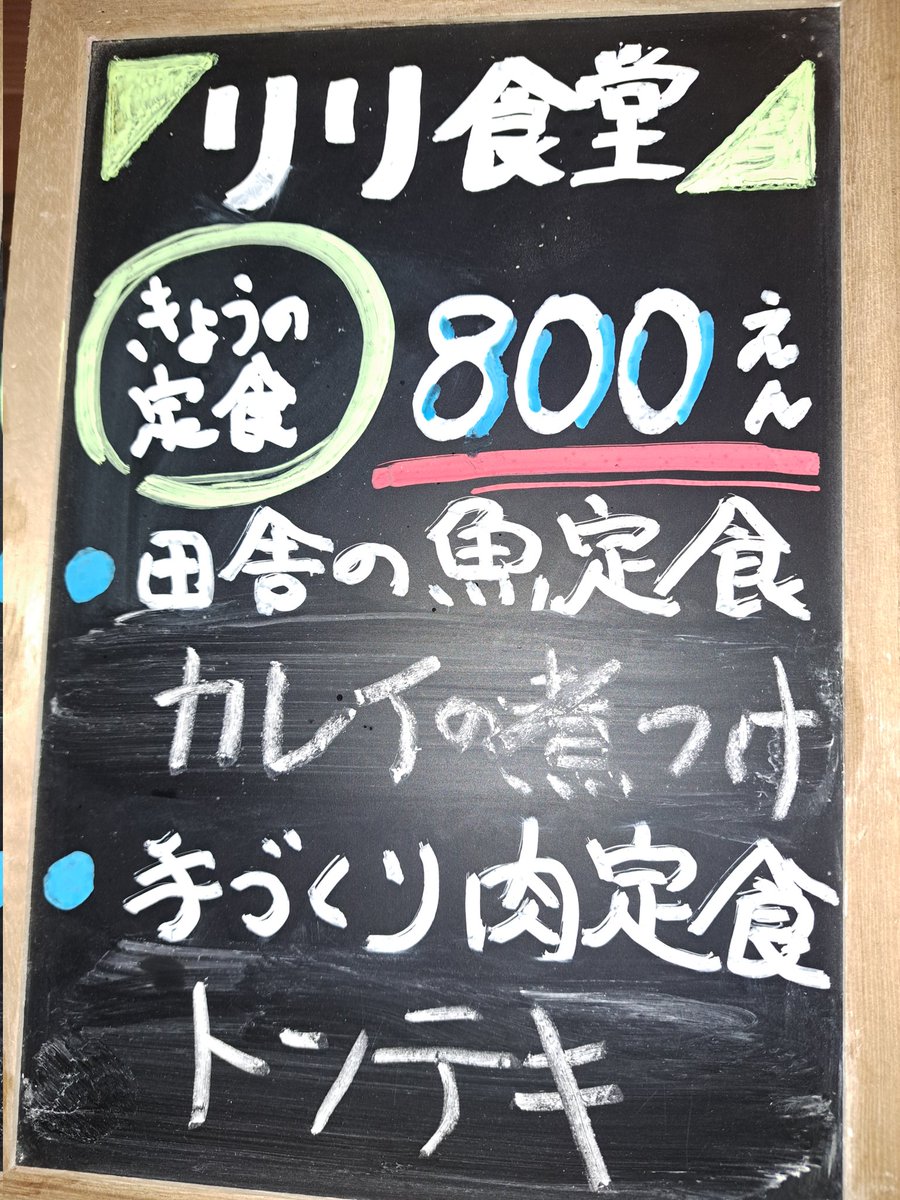 リリ食堂
きょうの
定食
800えん
田舎の魚定食
カレイの煮つけ
手づくり肉定食
トンテキ